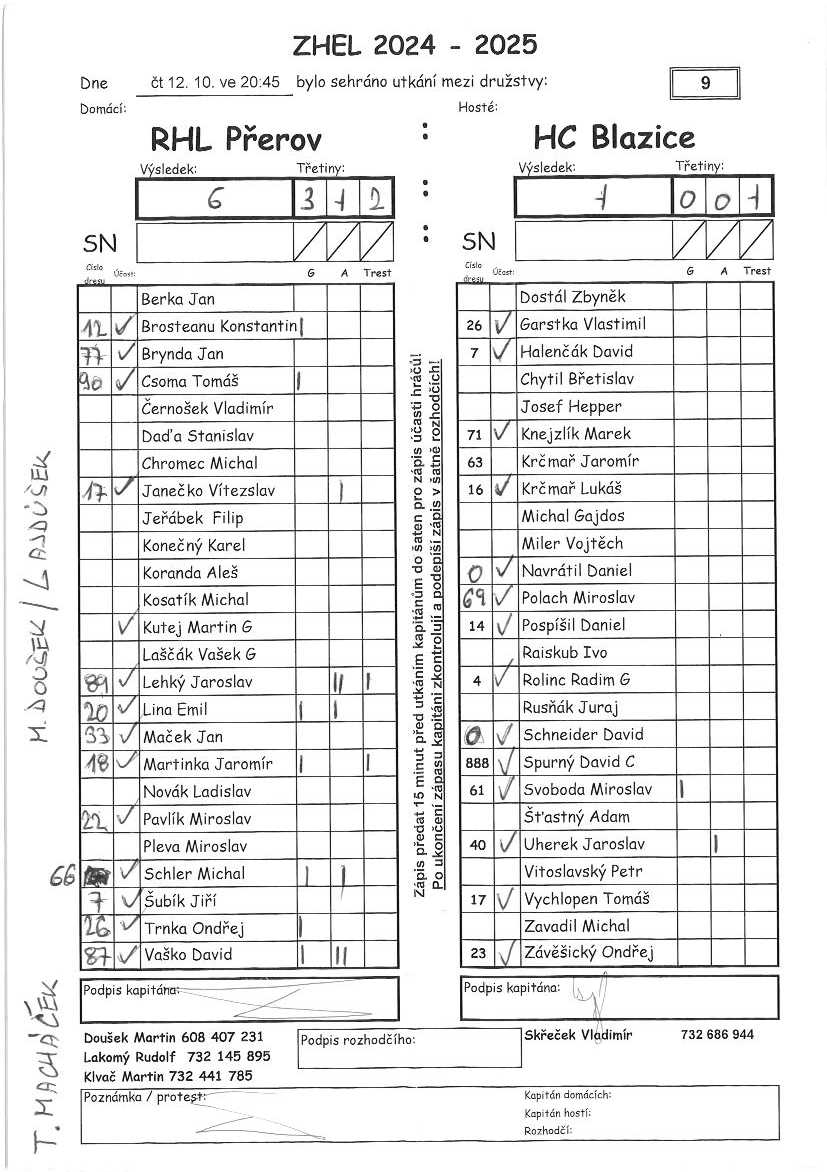 ZHEL 2024 - 2025
Dne čt 12. 10. ve 20:45 bylo sehráno utkání mezi družstvy: 9
Domácí: Hosté:
RHL Přerov : HC Blazice
Výsledek: Třetiny: Výsledek: Třetiny:
6 3 1 2 : 1 0 0 1
SN : SN
Číslo dresu Účast: G A Trest Číslo dresu Účast: G A Trest
Berka Jan
12 ✓ Brosteanu Konstantin |
77 ✓ Brynda Jan
90 ✓ Csoma Tomáš |
Černošek Vladimír
Daďa Stanislav
Chromec Michal
17 ✓ Janečko Vítezslav |
Jeřábek Filip
Konečný Karel
Koranda Aleš
Kosatík Michal
✓ Kutej Martin G
Laščák Vašek G
89 ✓ Lehký Jaroslav || |
20 ✓ Lina Emil | |
33 ✓ Maček Jan
18 ✓ Martinka Jaromír | |
Novák Ladislav
22 ✓ Pavlík Miroslav
Pleva Miroslav
66 ✓ Schler Michal | |
7 ✓ Šubík Jiří
26 ✓ Trnka Ondřej |
87 ✓ Vaško David | ||
Dostál Zbyněk
26 ✓ Garstka Vlastimil
7 ✓ Halenčák David
Chytil Břetislav
Josef Hepper
71 ✓ Knejzlík Marek
63 Krčmař Jaromír
16 ✓ Krčmař Lukáš
Michal Gajdos
Miler Vojtěch
0 ✓ Navrátil Daniel
69 ✓ Polach Miroslav
14 ✓ Pospíšil Daniel
Raiskub Ivo
4 ✓ Rolinc Radim G
Rusňák Juraj
0 ✓ Schneider David
888 ✓ Spurný David C
61 ✓ Svoboda Miroslav |
Šťastný Adam
40 ✓ Uherek Jaroslav |
Vitoslavský Petr
17 ✓ Vychlopen Tomáš
Zavadil Michal
23 ✓ Závěšický Ondřej
Zápis předat 15 minut před utkáním kapitánům do šaten pro zápis účasti hráčů!
Po ukončení zápasu kapitáni zkontrolují a podepíší zápis v šatně rozhodčích!
M. DOUŠEK / LAJDŮŠEK
T. MACHÁČEK
Podpis kapitána: Podpis kapitána:
Doušek Martin 608 407 231 Podpis rozhodčího: Skřeček Vladimír 732 686 944
Lakomý Rudolf 732 145 895
Klvač Martin 732 441 785
Poznámka / protest: Kapitán domácích:
Kapitán hostí:
Rozhodčí: